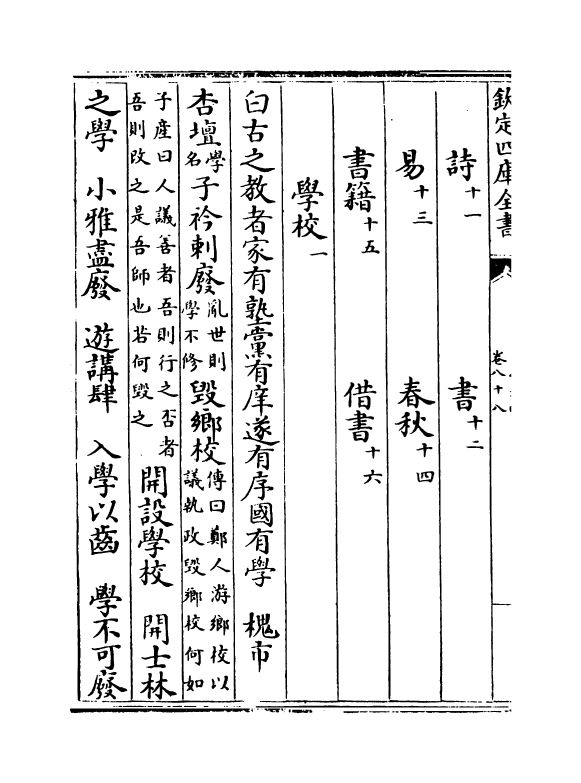 欽定四庫全書
卷八十八
詩十一　書十二
易十三　春秋十四
書籍十五　借書十六
學校一
曰古之教者家有塾黨有庠遂有序國有學　槐市
杏壇學名子衿刺廢亂世則學不修毀鄉校傳曰鄭人游鄉校以議執政毀鄉校何如
子產曰人議善者吾則行之否者吾則改之是吾師也若何毀之　開設學校　開士林
之學　小雅盡廢　遊講肆　入學以齒　學不可廢